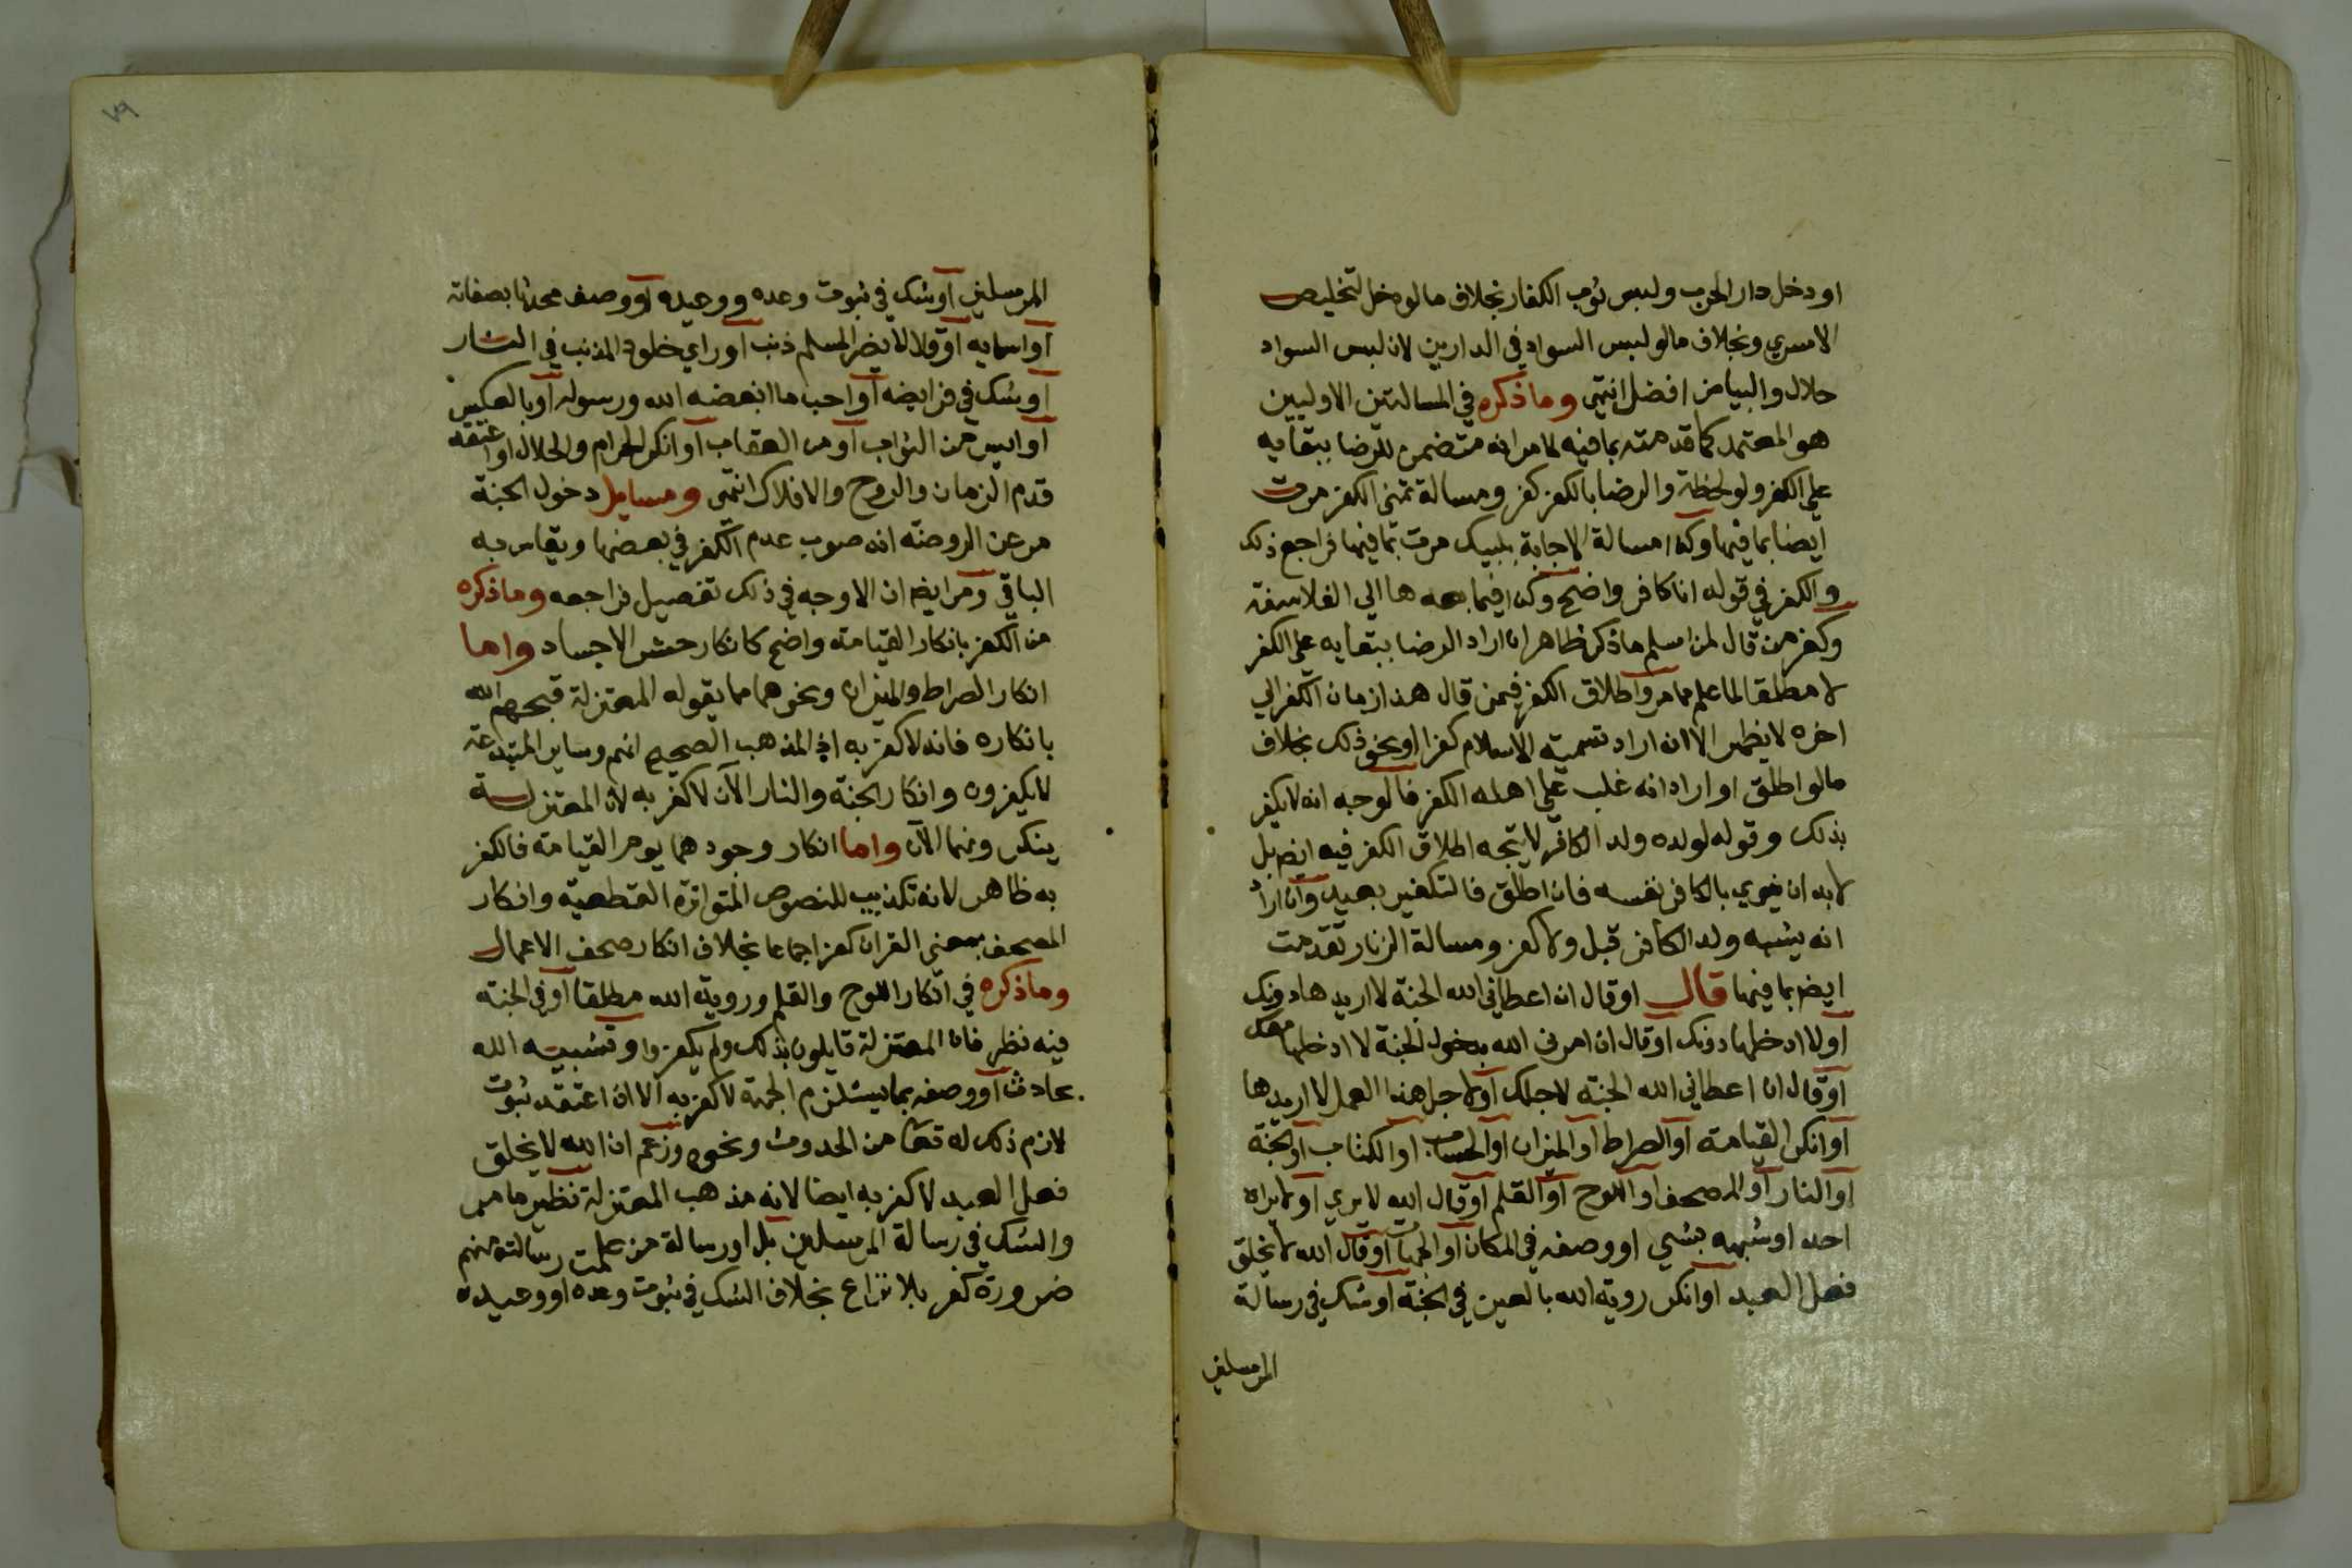 او دخل دار الحرب ولبس ثوب الكفار بخلاف ما لو دخل لتخليص
الاسري وبخلاف ما لو لبس السواد في الدارين لان لبس السواد
حلال والبياض افضل انتهى وما ذكره في المسالتين الاوليين
هو المعتمد كما قدمته بما فيه لامر انه متضمن للرضا ببقايه
علي الكفر ولو لحظة والرضا بالكفر كفر ومسالة تمني الكفر مرت
ايضا بما فيها وكذا مسالة الاجابة بلبيك مرت بما فيها فراجع ذلك
والكفر في قوله انا كافر واضح وكذا فيما بعدها الي الفلاسفة
وكفر من قال لمن اسلم ما ذكر ظاهر ان اراد الرضا ببقايه علي الكفر
لا مطلقا لما علم مما مر واطلاق الكفر فيمن قال هذا زمان الكفر الي
اخره لا يظهر الا ان اراد تسمية الاسلام كفرا او نحو ذلك بخلاف
ما لو اطلق او اراد انه غلب علي اهله الكفر فالوجه انه لا يكفر
بذلك وقوله لولده ولد الكافر لا يتجه اطلاق الكفر فيه ايضا بل
لا بد ان ينوي بالكافر نفسه فان اطلق فالتكفير بعيد وان اراد
انه يشبه ولد الكافر قبل ولا كفر ومسالة الزنار تقدمت
ايضا بما فيها قال او قال ان اعطاني الله الجنة لا اريدها دونك
او لا ادخلها دونك او قال ان امرني الله بدخول الجنة لا ادخلها معك
او قال ان اعطاني الله الجنة لاجلك او لاجل هذا العمل لا اريدها
او انكر القيامة او الصراط او الميزان او الحساب او الكتاب او الجنة
او النار او المصحف او اللوح او القلم او قال الله لا يري او لا يراه
احد او شبهه بشي او وصفه في المكان او الجهات او قال الله لا يخلق
فعل العبد او انكر روية الله بالعين في الجنة او شك في رسالة
المرسلين
المرسلين او شك في ثبوت وعده ووعيده او وصف محدثا بصفاته
او اسمايه او قال لا يضر المسلم ذنب او راي خلود المذنب في النار
او شك في فرايضه او احب ما ابغضه الله ورسوله او بالعكس
او ايس من الثواب او من العقاب او انكر الحرام والحلال او اعتقد
قدم الزمان والروح والافلاك انتهى ومسايل دخول الجنة
مر عن الروضة انه صوب عدم الكفر في بعضها ويقاس به
الباقي ومر ايضا ان الاوجه في ذلك تفصيل فراجعه وما ذكره
من الكفر بانكار القيامة واضح كانكار حشر الاجساد واما
انكار الصراط والميزان ونحوهما مما يقوله المعتزلة قبحهم الله
بانكاره فانه لا كفر به اذ المذهب الصحيح انهم وساير المبتدعة
لا يكفرون وانكار الجنة والنار الآن لا كفر به لان المعتزلة
ينكرونهما الآن واما انكار وجودهما يوم القيامة فالكفر
به ظاهر لانه تكذيب للنصوص المتواترة القطعية وانكار
المصحف بمعنى القران كفر اجماعا بخلاف انكار صحف الاعمال
وما ذكره في انكار اللوح والقلم وروية الله مطلقا او في الجنة
فيه نظر فان المعتزلة قايلون بذلك ولم يكفروا وتشبيه الله
بحادث او وصفه بما يستلزم الجهة لا كفر به الا ان اعتقد ثبوت
لازم ذلك له تعالى من الحدوث ونحوه وزعم ان الله لا يخلق
فعل العبد لا كفر به ايضا لانه مذهب المعتزلة نظير ما مر
والشك في رسالة المرسلين بل او رسالة من علمت رسالته منهم
ضرورة كفر بلا نزاع بخلاف الشك في ثبوت وعده او وعيده